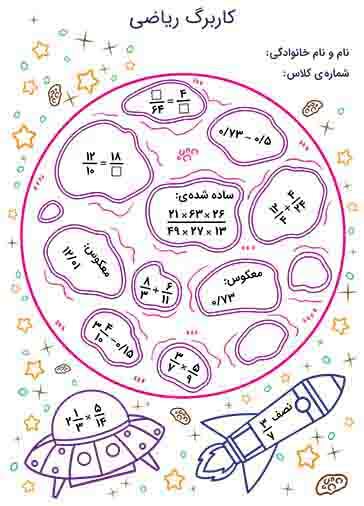 کاربرگ ریاضی
نام و نام خانوادگی:
شماره‌ی کلاس:
□/۶۴ = ۴/□
۰/۷۳ − ۰/۵
۱۲/۱۰ = ۱۸/□
ساده شده‌ی:
۲۱×۶۳×۲۶
۴۹×۲۷×۱۳
معکوس:
۱۲/۰۱
۸/۳ ÷ ۶/۱۱
معکوس:
۰/۷۳
۳ ۴/۱۰ − ۰/۱۵
۳/۷ × ۵/۹
۲ ۱/۳ × ۵/۱۴
نصف ۳/۷